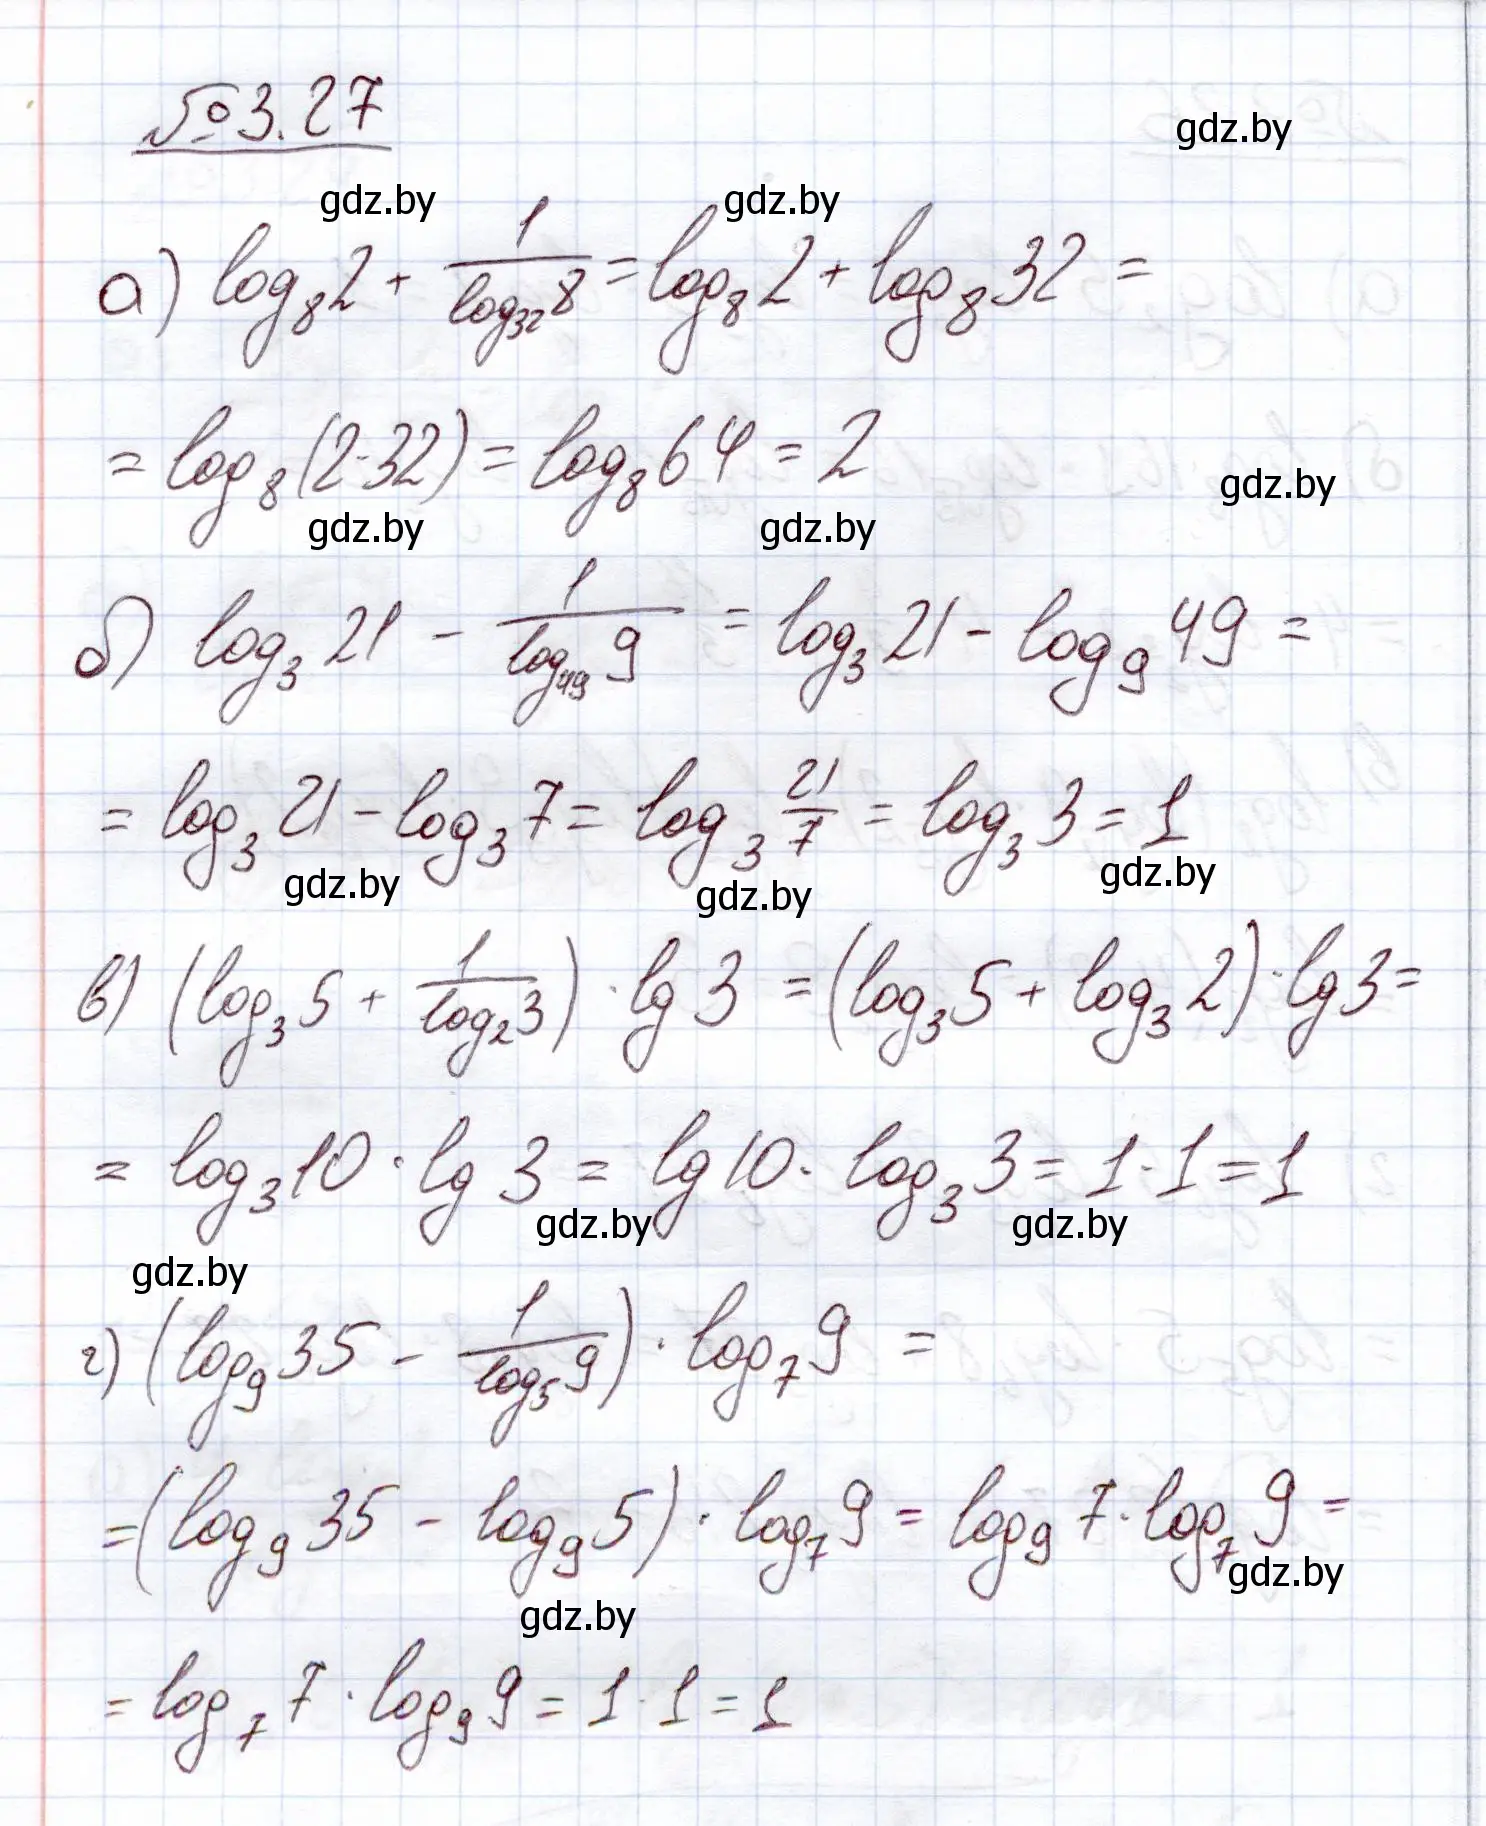 №3.27
gdz.by
gdz.by gdz.by
а) log₈2 + 1/(log₃₂8) = log₈2 + log₈32 =
= log₈(2·32) = log₈64 = 2
gdz.by
gdz.by gdz.by
б) log₃21 - 1/(log₄₉9) = log₃21 - log₉49 =
= log₃21 - log₃7 = log₃ 21/7 = log₃3 = 1
gdz.by gdz.by gdz.by
в) (log₃5 + 1/(log₂3)) · lg3 = (log₃5 + log₃2) · lg3 =
= log₃10 · lg3 = lg10 · log₃3 = 1·1 = 1
gdz.by gdz.by
gdz.by
г) (log₉35 - 1/(log₅9)) · log₇9 =
= (log₉35 - log₉5) · log₇9 = log₉7 · log₇9 =
gdz.by
gdz.by
= log₇7 · log₉9 = 1·1 = 1